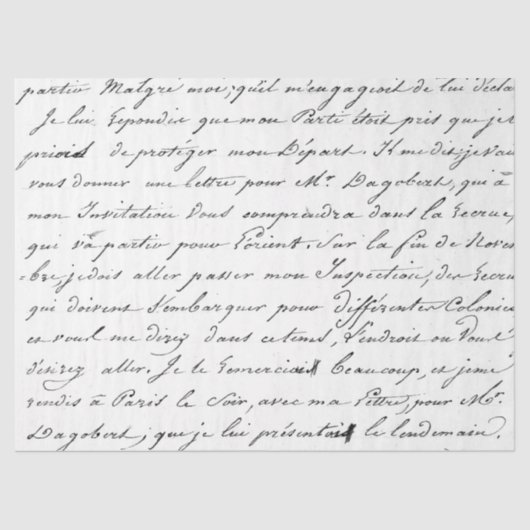 partir Malgré moi; qu'il m'engageoit de lui décla
Je lui Repondis que mon Parti étoit pris que je
priois de protéger mon Départ. Il me dit; je vai
vous donner une lettre pour Mr. Dagobert, qui à
mon Invitation Vous comprendra dans la Recrue,
qui va partir pour L'orient. Sur la fin de Novem
-bre, je dois aller passer mon Inspection, des Recrue
qui doivent S'embarquer pour différentes Colonies
et vous me direz dans ce tems, L'endroit ou Vous
désirez aller. Je le Remerciais beaucoup, et je me
rendis à Paris le Soir, avec ma Lettre, pour Mr.
Dagobert; que je lui présentois le lendemain.